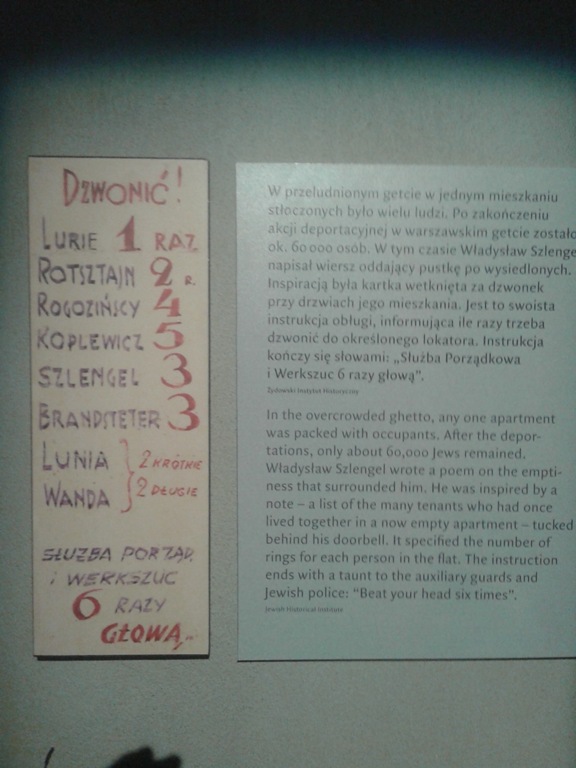 DZWONIĆ!
LURIE 1 RAZ
ROTSZTAJN 2 R.
ROGOZIŃSCY 4
KOPLEWICZ 5
SZLENGEL 3
BRANDSTETER 3
LUNIA } 2 KRÓTKIE
WANDA } 2 DŁUGIE
SŁUŻBA PORZĄD.
i WERKSZUC
6 RAZY
GŁOWĄ...
W przeludnionym getcie w jednym mieszkaniu
stłoczonych było wielu ludzi. Po zakończeniu
akcji deportacyjnej w warszawskim getcie zostało
ok. 60 000 osób. W tym czasie Władysław Szlengel
napisał wiersz oddający pustkę po wysiedlonych.
Inspiracją była kartka wetknięta za dzwonek
przy drzwiach jego mieszkania. Jest to swoista
instrukcja obsługi, informująca ile razy trzeba
dzwonić do określonego lokatora. Instrukcja
kończy się słowami: „Służba Porządkowa
i Werkszuc 6 razy głową".
Żydowski Instytut Historyczny
In the overcrowded ghetto, any one apartment
was packed with occupants. After the depor-
tations, only about 60,000 Jews remained.
Władysław Szlengel wrote a poem on the empti-
ness that surrounded him. He was inspired by a
note – a list of the many tenants who had once
lived together in a now empty apartment – tucked
behind his doorbell. It specified the number of
rings for each person in the flat. The instruction
ends with a taunt to the auxiliary guards and
Jewish police: "Beat your head six times".
Jewish Historical Institute